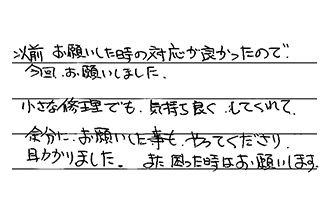 以前 お願いした時の対応が良かったので
今回 お願いしました.
小さな修理でも. 気持ち良く してくれて.
余分に お願いした事も やってくださり
助かりました。 また 困った時はお願いします